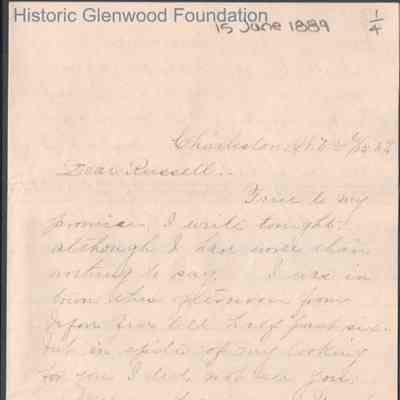 Historic Glenwood Foundation
15 June 1889
1/4
Charleston,
Dear Russell:-
True to my
promise, I write tonight,
although I have more than
nothing to say. I was in
town this afternoon from
before four till half past six.
but in spite of my looking
for you I did not see you.